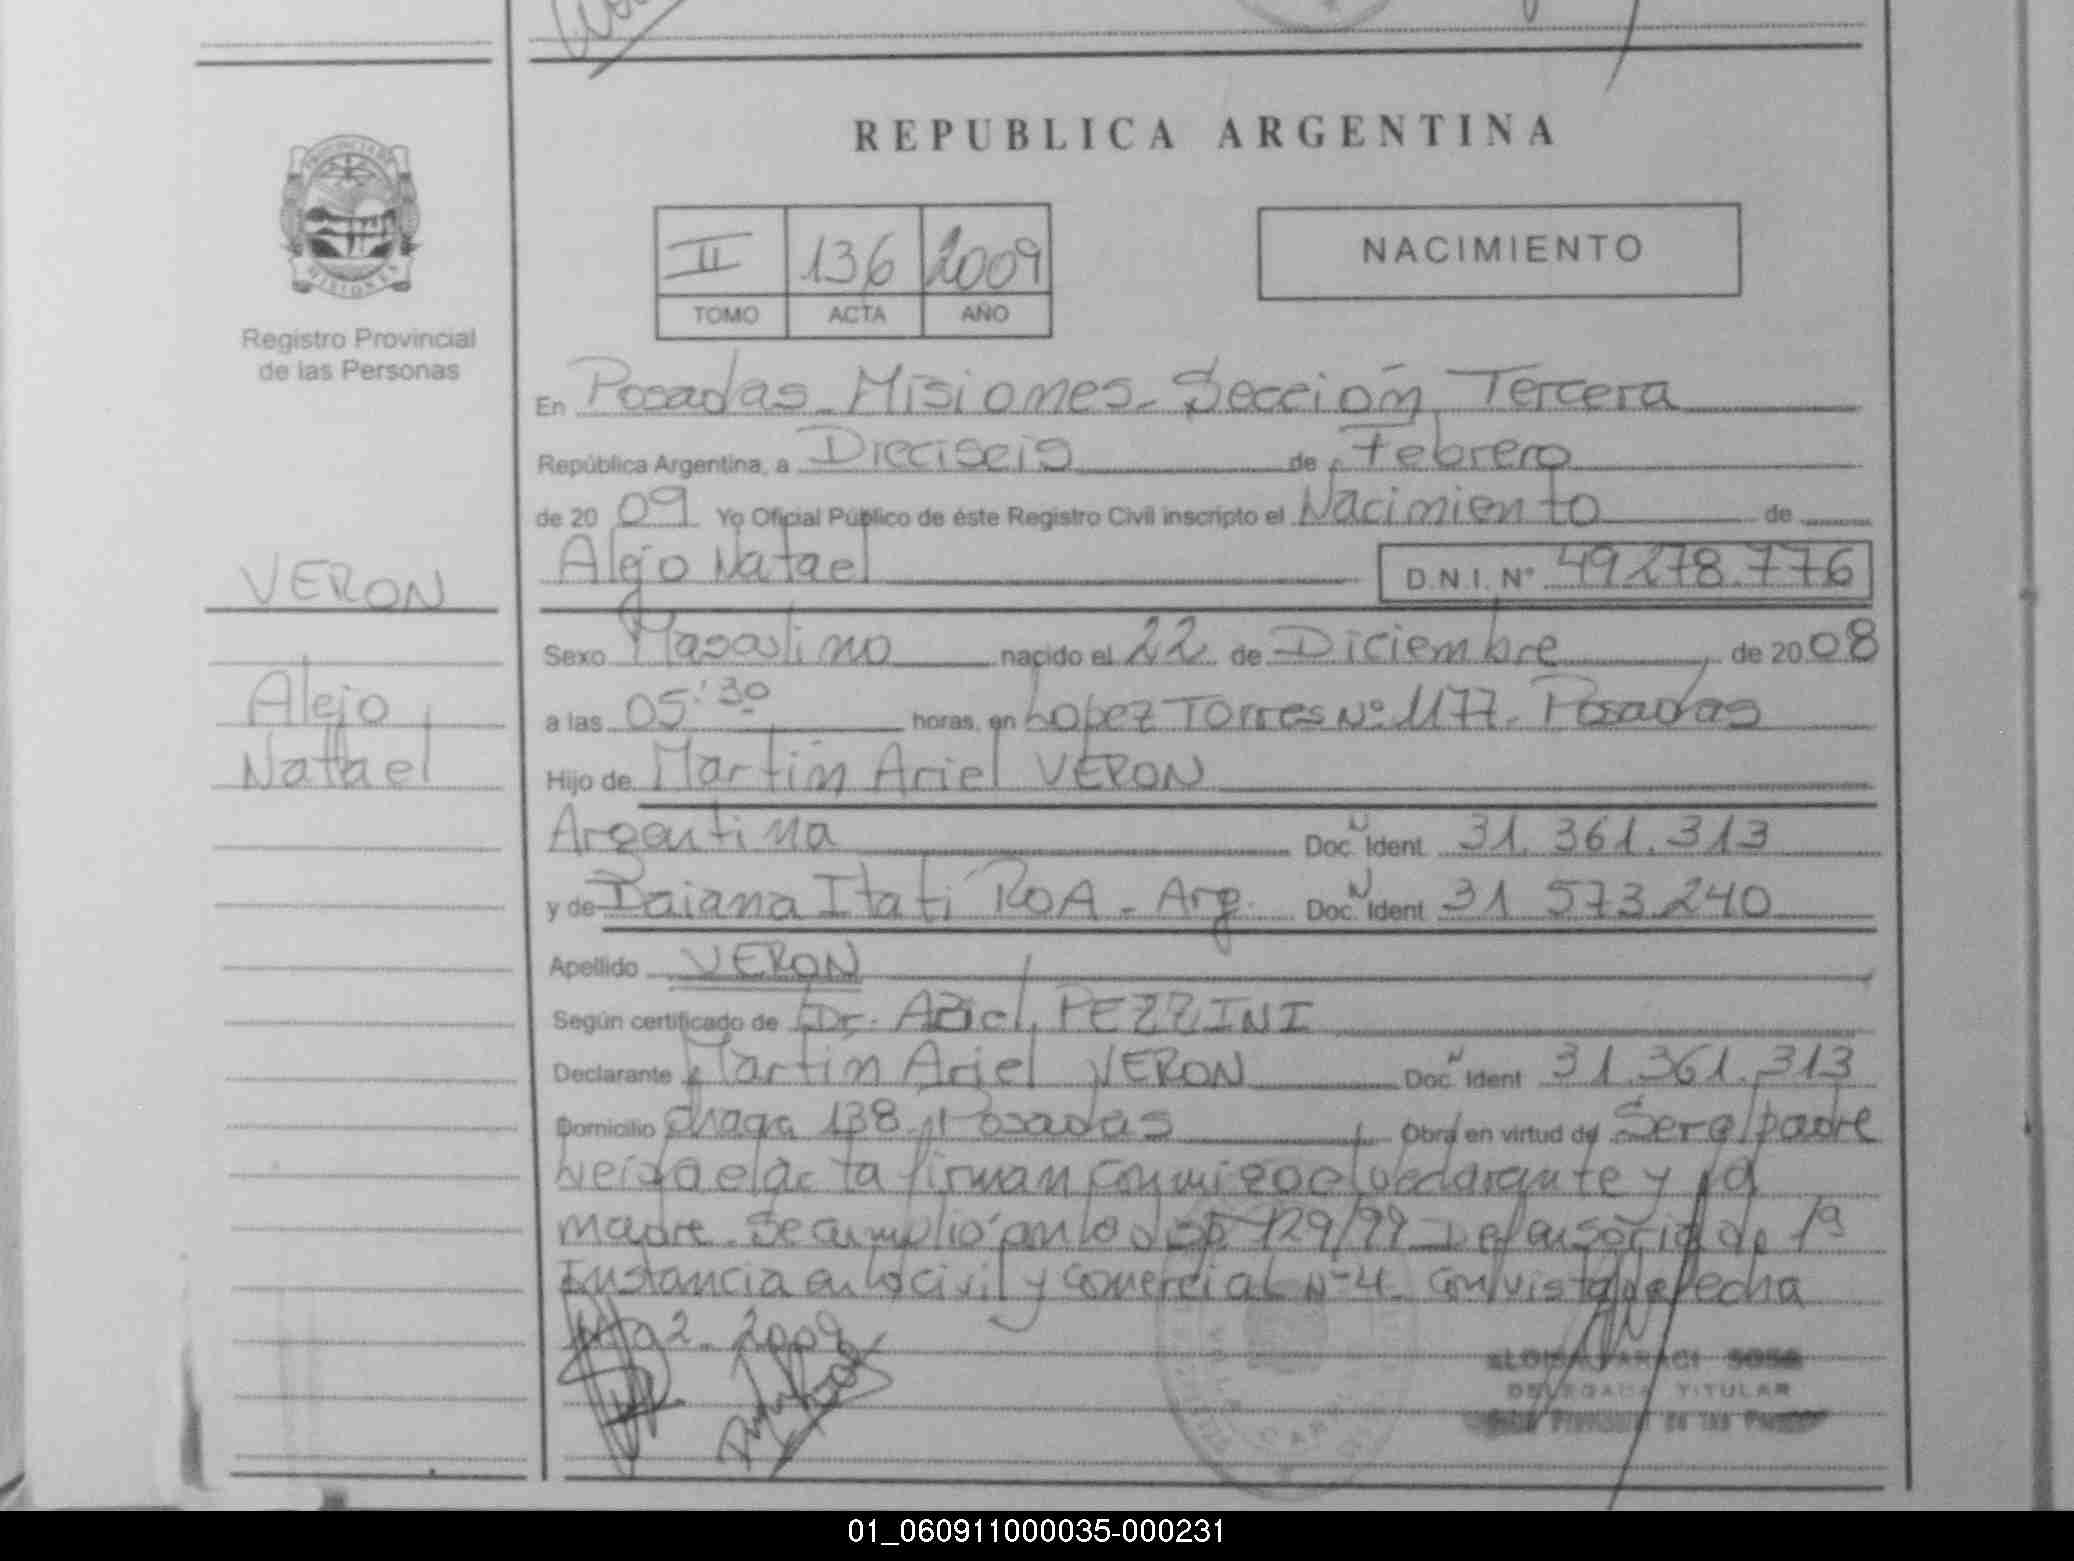 REPUBLICA ARGENTINA
II 136 2009
TOMO ACTA AÑO
NACIMIENTO
Registro Provincial
de las Personas
En Posadas - Misiones - Sección Tercera
República Argentina, a Dieciseis de Febrero
de 20 09 Yo Oficial Público de éste Registro Civil inscripto el Nacimiento de
Alejo Natael D.N.I. Nº 49.278.776
VERON
Alejo
Natael
Sexo Masculino nacido el 22 de Diciembre de 20 08
a las 05:30 horas, en Lopez Torres Nº 1177. Posadas
Hijo de Martín Ariel VERON
Argentina Doc. N Ident 31.361.313
y de Daiana Itatí ROA - Arg. Doc. N Ident 31 573.240
Apellido VERON
Según certificado de Dr. Ariel PEZZINI
Declarante Martín Ariel VERON Doc. N Ident 31.361.313
Domicilio chacra 138. Posadas Obra en virtud de Ser el padre
Leida el acta firman conmigo el declarante y la
madre. Se cumplió con la disp 129/99 Defensoría de 1ª
Instancia en lo civil y comercial Nº 4. con vista de fecha
2009
SOSA
DELEGADA TITULAR
Provincial de las Personas
01_060911000035-000231